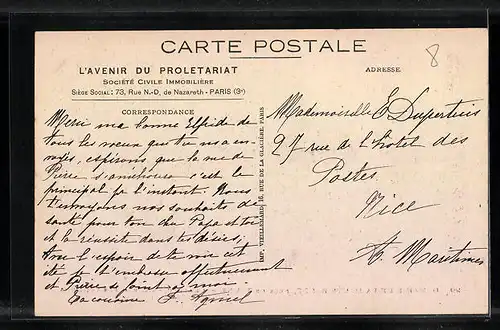 CARTE POSTALE
8
L'AVENIR DU PROLETARIAT
SOCIÉTÉ CIVILE IMMOBILIÈRE
SIÈGE SOCIAL: 73, Rue N.-D. de Nazareth - PARIS (3e)
ADRESSE
CORRESPONDANCE
Merci ma bonne Elfride de
tous les vœux que tu nous a en-
voyés, espérons que la vue de
Pierre s'améliorera c'est le
principal pr l'instant. Nous
t'envoyons nos souhaits de
santé pour ton cher Papa et toi
et la réussite dans tes désirs.
Avec l'espoir de te voir cet
été je t'embrasse affectueusement
et Pierre se joint à moi.
Ta cousine
IMP. VIEILLEMARD, 16, RUE DE LA GLACIÈRE, PARIS
Mademoiselle E. Dupertuis
27 rue de l'hotel des
Postes
Nice
A. Maritimes